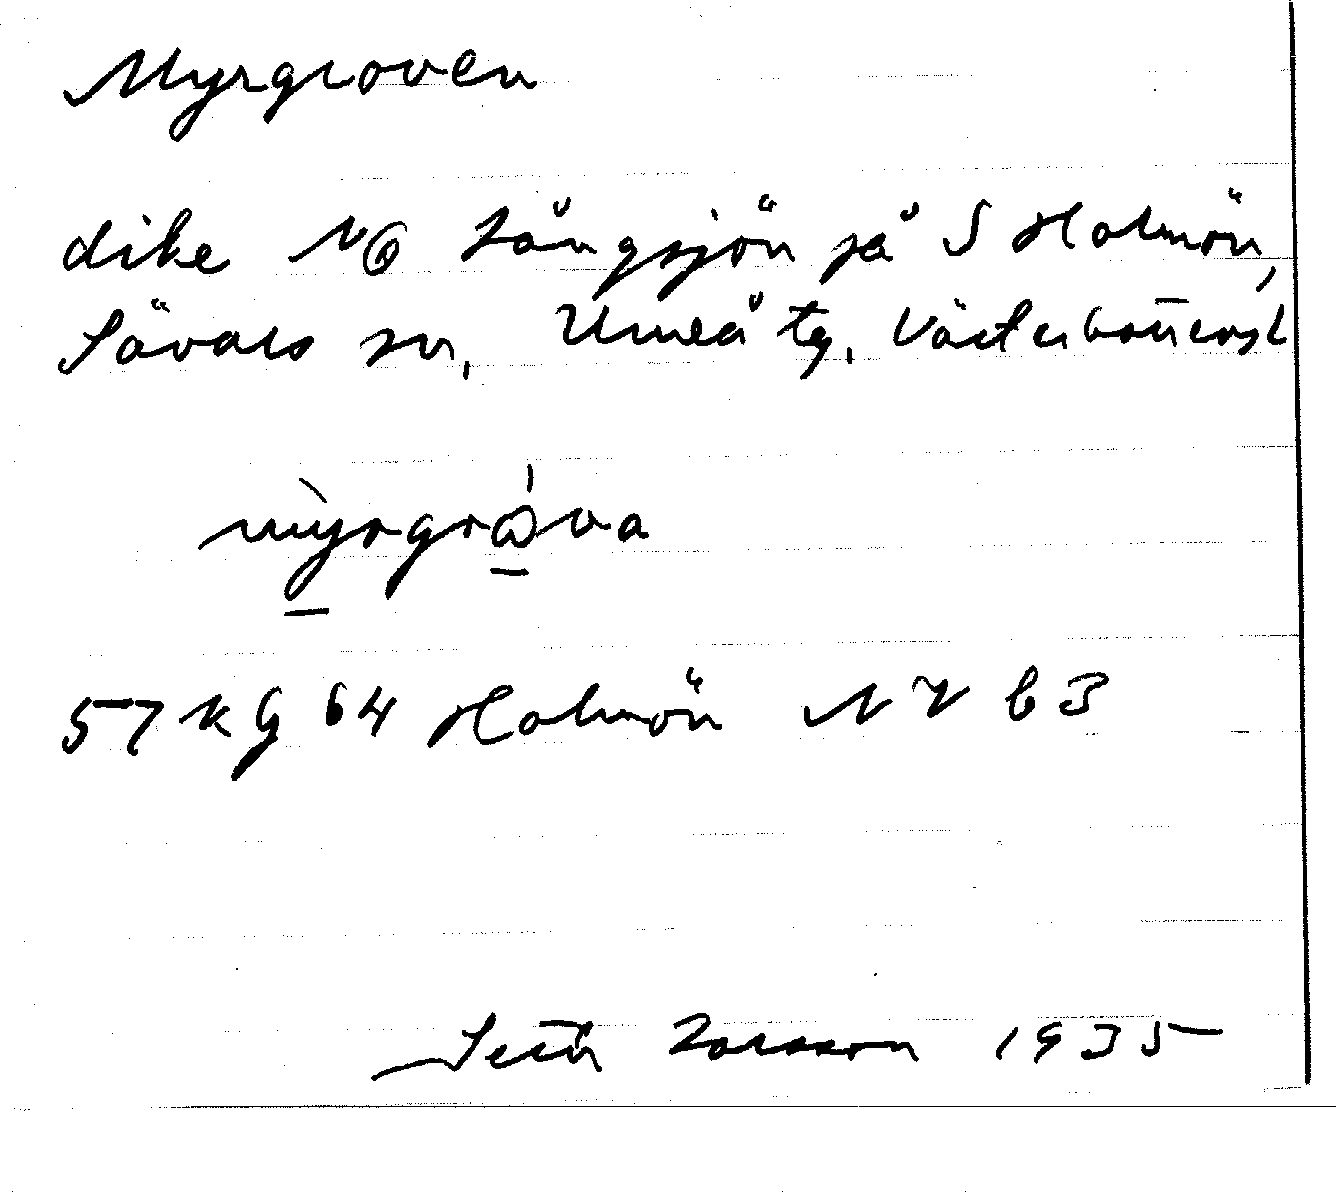 Myrgroven
dike NO Långsjön på S Holmön,
Sävars sn, Umeå tg, Västerbottensl
57 kg 64 Holmön NV b3
Larsson 1935